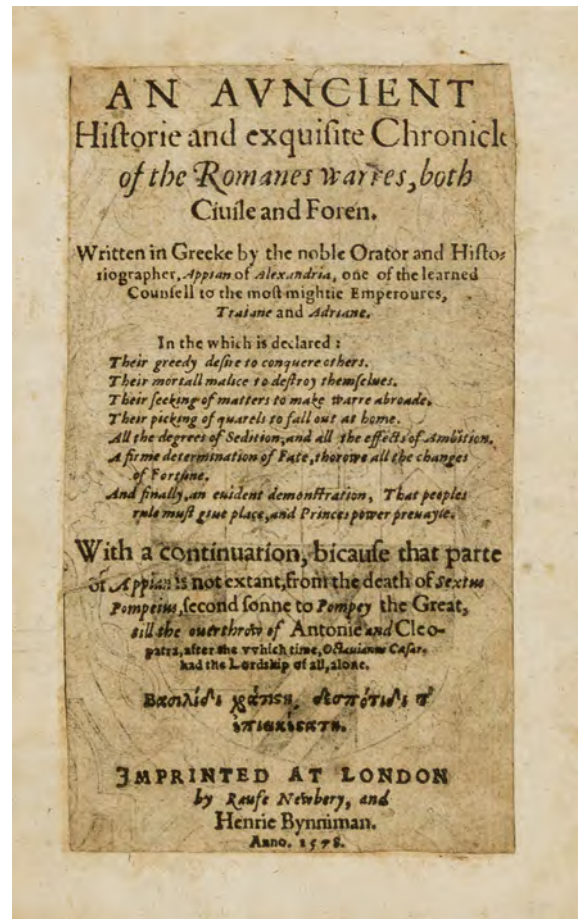 AN AVNCIENT
Hiſtorie and exquiſite Chronicle
of the Romanes warres, both
Ciuile and Foren.
Written in Greeke by the noble Orator and Hiſto-
riographer, Appian of Alexandria, one of the learned
Counſell to the moſt mightie Emperoures,
Traiane and Adriane.
In the which is declared:
Their greedy deſire to conquere others.
Their mortall malice to deſtroy themſelues.
Their ſeeking of matters to make warre abroade.
Their picking of quarels to fall out at home.
All the degrees of Sedition, and all the effects of Ambition.
A firme determination of Fate, thorowe all the changes
of Fortune.
And finally, an euident demonſtration, That peoples
rule muſt giue place, and Princes power preuayle.
With a continuation, bicauſe that parte
of Appian is not extant, from the death of Sextus
Pompeius, ſecond ſonne to Pompey the Great,
till the ouerthrow of Antonie and Cleo-
patra, after the vvhich time, Octauianus Cæſar,
had the Lordship of all, alone.
IMPRINTED AT LONDON
by Raufe Newbery, and
Henrie Bynniman.
Anno. 1578.